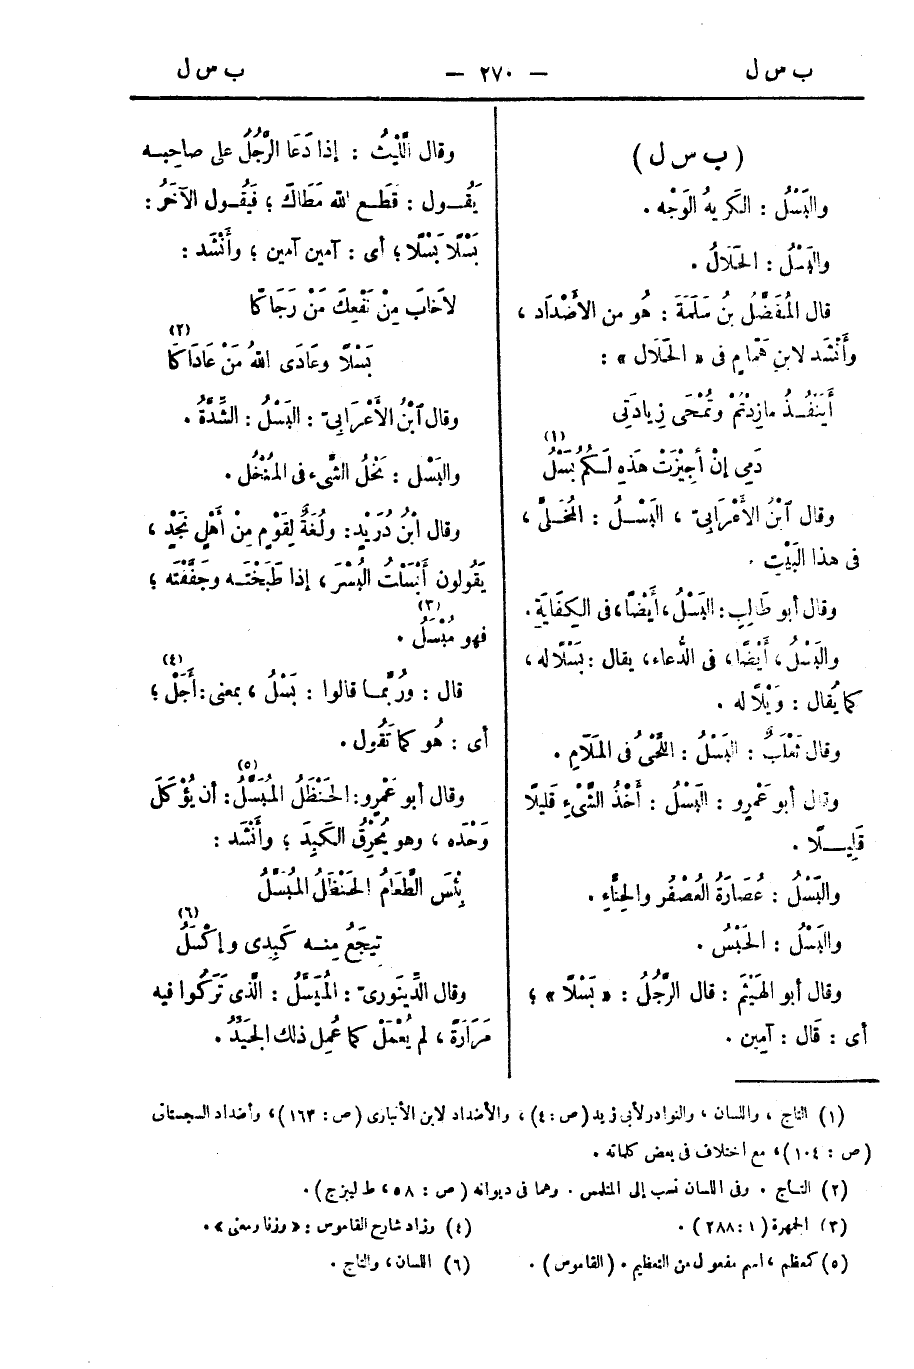 ب س ل — ٢٧٠ — ب س ل
( ب س ل )
والبَسْلُ : الكَرِيهُ الوَجْه .
والبَسْلُ : الحَلَالُ .
قال المُفَضَّلُ بنُ سَلَمَةَ : هُو من الأَضْدَاد ،
وأَنْشَد لابنِ هَمَّامٍ فى « الحَلَال » :
أَيَنْفُـذُ مازِدْتُمْ وتُمْحَى زِيادَتِى
دَمِى إِنْ أُجِيزَتْ هَذِهِ لَـكُمْ بَسْلُ (١)
وقال ٱبْنُ الأَعْرَابِىّ ، البَسْـلُ : المُخَلَّى ،
فى هذا البَيْتِ .
وقال أبو طَالِبٍ : البَسْلُ ، أَيْضًا ، فى الكِفَايَةِ .
والبَسْلُ ، أَيْضًا ، فى الدُّعاء ، يقال : بَسْلًا له ،
كما يُقال : وَيْلًا له .
وقال ثَعْلَبٌ : البَسْلُ : اللَّحْىُ فى المَلَامِ .
وقال أبو عَمْرٍو : البَسْلُ : أَخْذُ الشَّىْءِ قَلِيلًا
قَلِيـــلًا .
والبَسْلُ : عُصَارَةُ العُصْفُر والحِنَّاءِ .
والبَسْلُ : الحَبْسُ .
وقال أبو الهَيْثَمِ : قال الرَّجُلُ : « بَسْلًا » ؛
أى : قَال : آمِين .
وقال اللَّيْثُ : إذا دَعَا الرَّجُلُ على صاحِبِـه
يَقُــول : قَطَـع الله مَطَاكَ ؛ فَيَقُـول الآخَرُ :
بَسْلًا بَسْلًا ؛ أى : آمين آمين ؛ وأَنْشَد :
لاَخَابَ مِنْ نَفْعِكَ مَنْ رَجَاكَا
بَسْلًا وعَادَى اللهُ مَنْ عَادَاكَا (٢)
وقال ٱبْنُ الأَعْرَابِىّ : البَسْلُ : الشِّدَّةُ .
والبَسْل : نَخْلُ الشَّىء فى المُنْخُل .
وقال ٱبْنُ دُرَيْدٍ : ولُغَةٌ لِقَوْمٍ مِنْ أَهْلِ نَجْدٍ ،
يَقُولون أَبْسَلْتُ البُسْرَ ، إذا طَبَخْتَـه وجَفَّفْتَه ؛
فهو مُبْسَلٌ (٣) .
قال : ورُبَّمـا قالوا : بَسَلْ (٤) ، بمعنى : أَجَلْ ؛
أى : هُو كما تَقُول .
وقال أبو عَمْرٍو : الحَنْظَلُ المُبَسَّلُ (٥) : أن يُؤْكَلَ
وَحْدَه ، وهو يُحْرِقُ الكَبِدَ ؛ وأَنْشَد :
بِئْسَ الطَّعَامُ الحَنْظَلُ المُبَسَّلُ
تِيجَعُ مِنـه كَبِدِى وإِكْسَلُ (٦)
وقال الدِّينَورىّ : المُبَسَّلُ : الَّذى تَرَكُوا فيه
مَرَارَةً ، لم يُعْمَلْ كما عُمِل ذلك الجَيِّدُ .
(١) التاج ، واللسان ، والنوادر لأبى زيد ( ص : ٤ ) ، والأضداد لابن الأنبارى ( ص : ١٦٣ ) ، وأضداد السجستانى
( ص : ١٠٤ ) ، مع اختلاف فى بعض كلماته .
(٢) التـاج . وفى اللسان نسب إلى المتلمس . وهما فى ديوانه ( ص : ٥٨ ، ط ليبزج ) .
(٣) الجمهرة ( ١ : ٢٨٨ ) . (٤) وزاد شارح القاموس : « وزنا ومعنى » .
(٥) كمعظم ، اسم مفعول من التعظيم . ( القاموس ) . (٦) اللسان ، والتاج .